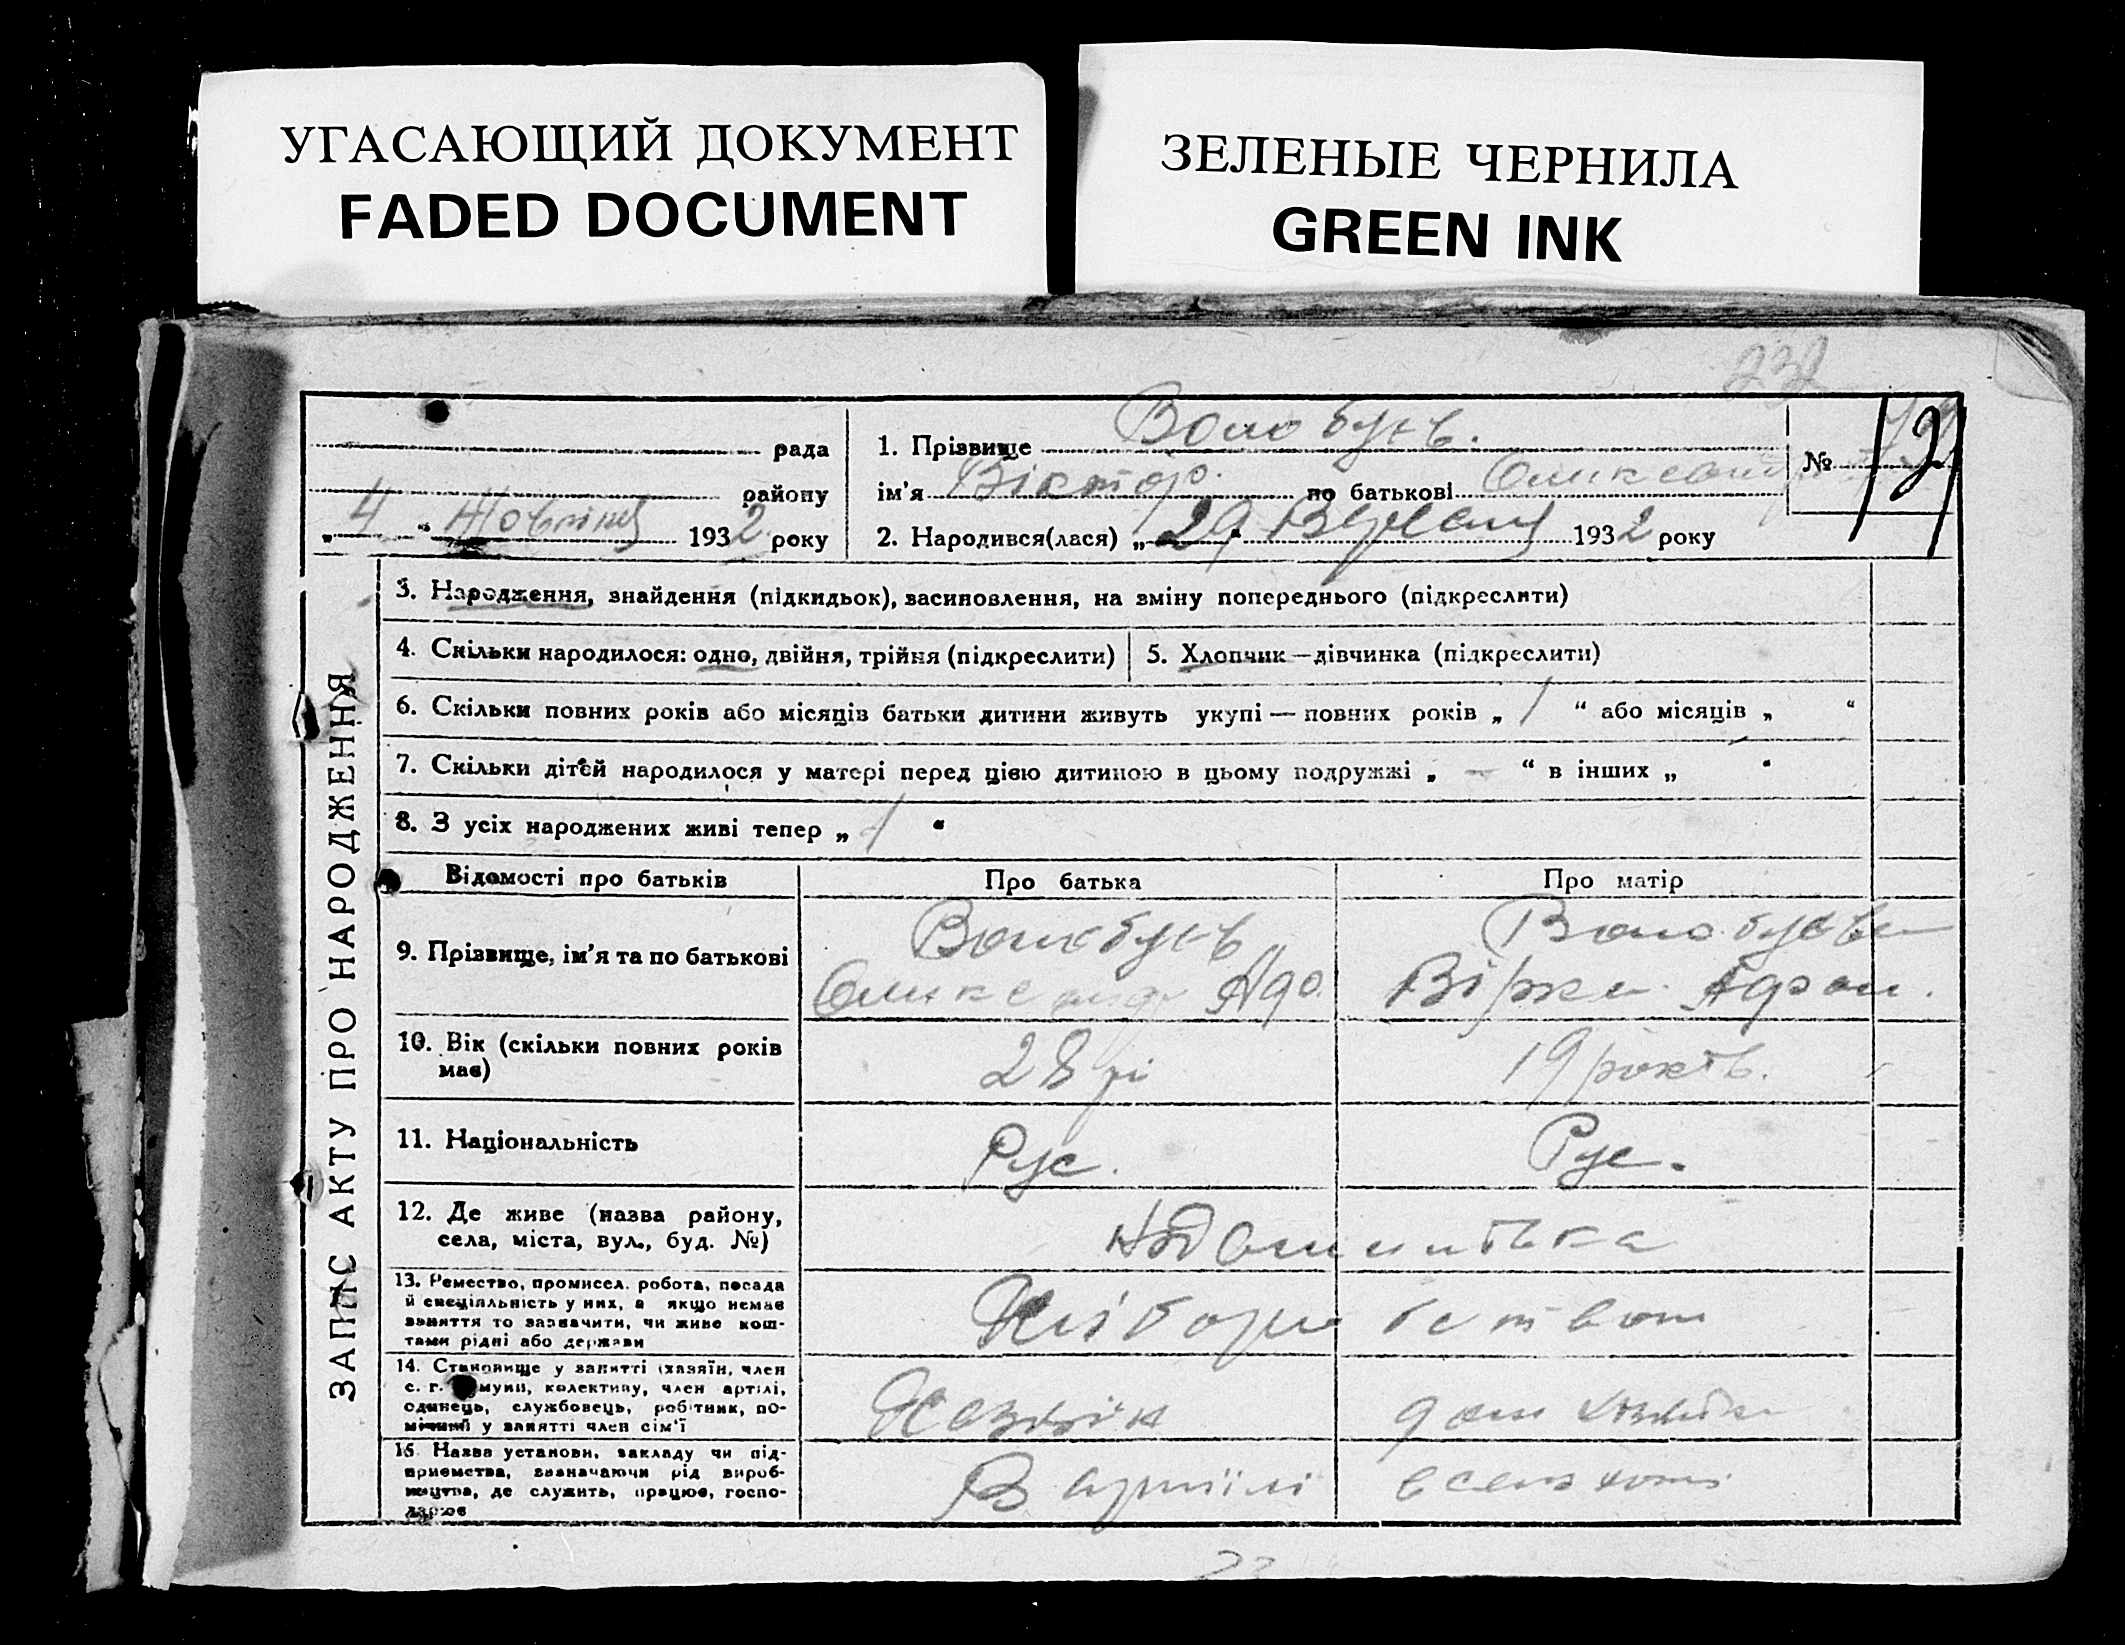 УГАСАЮЩИЙ ДОКУМЕНТ
FADED DOCUMENT
ЗЕЛЕНЫЕ ЧЕРНИЛА
GREEN INK
232
рада
району
„ 4 “ Жовтня 1932 року
1. Прізвище Волобуєв.
ім'я Віктор. по батькові
2. Народився(лася) „ 29 “ Вересня 1932 року
№ 121
ЗАПИС АКТУ ПРО НАРОДЖЕННЯ
3. Народження, знайдення (підкидьок), засиновлення, на зміну попереднього (підкреслити)
4. Скільки народилося: одно, двійня, трійня (підкреслити)
5. Хлопчик—дівчинка (підкреслити)
6. Скільки повних років або місяців батьки дитини живуть укупі — повних років „ 1 “ або місяців „ “
7. Скільки дітей народилося у матері перед цією дитиною в цьому подружжі „ — “ в інших „ “
8. З усіх народжених живі тепер „ 1 “
Відомості про батьків
Про батька
Про матір
9. Прізвище, ім'я та по батькові
Волобуєв
Волобуєва
10. Вік (скільки повних років
має)
28 рі
19 років.
11. Національність
Рус.
Рус.
12. Де живе (назва району,
села, міста, вул., буд. №)
13. Ремество, промисел. робота, посада
й спеціяльність у них, а якщо немає
заняття то зазначити, чи живе кош-
тами рідні або держави
14. Становище у занятті (хазяїн, член
с. г. комуни, колективу, член артілі,
одинець, службовець, робітник, по-
мічний у занятті член сім'ї
15. Назва установи, закладу чи під-
приємства, зазначаючи рід вироб-
ництва, де служить, працює, госпо-
дарює
В артілі